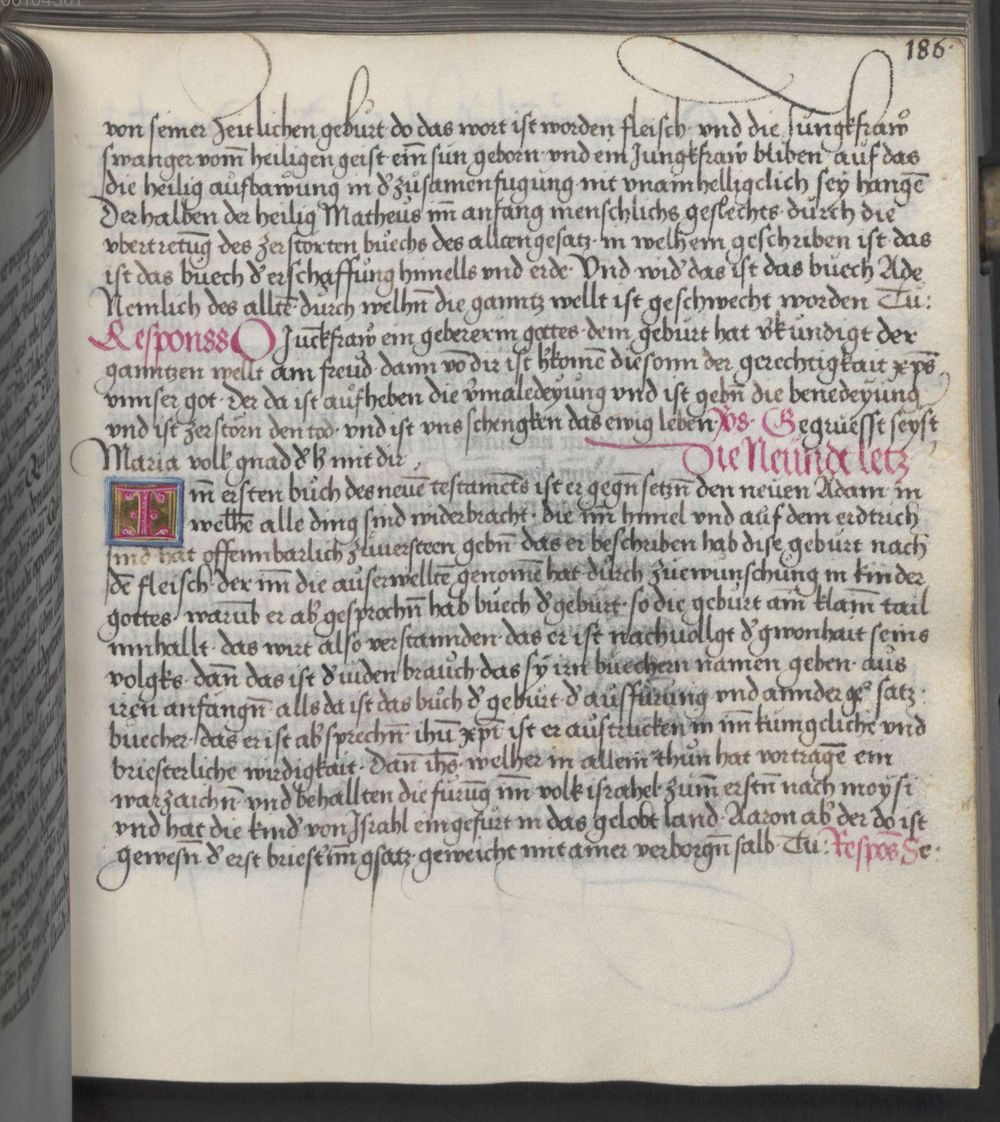 186.
von seiner zeitlichen geburt do das wort ist worden fleisch · vnd die Jungkfraw
swanger vom̄ heiligen geist ein̄ sun geborn · vnd ein Jungkfraw bliben auf das
die heilig aufbawung in d' zusamenfugung nit vnainhelligclich sey hangē
Derhalben der heilig Matheus im̄ anfang menschlichs geslechts · durch die
vbertretūg des zerstorten buechs des alltengesatz · in welhem geschriben ist das
ist das buech d' erschaffung himells vnd erde · Vnd wid' das ist das buech Ade
Nemlich des alltē durch welhn̄ die ganntz wellt ist geschwecht worden Tu:
Responss O Junckfraw ein gebererin gottes · dem geburt hat v'kundigt der
ganntzen wellt am freud · dann vō dir ist h'komē die sonn der gerechtigkait xp̄s
vnnser got · Der da ist aufheben die v'maledeyung vnd ist gebn̄ die benedeyung
vnd ist zerstorn den tod · vnd ist vns schengken das ewig leben · Vs · Gegruesst seyst
Maria voll gnad d' h' mit dir Die Neunde letz
Im̄ ersten buch des neuē testamēts ist er gegn̄ setzn̄ den neuen Adam · in
welhē alle ding sind widerbracht · die im̄ himel vnd auf dem erdtrich
sind hat offennbarlich zuuersteen gebn̄ das er beschriben hab dise geburt nach
dē fleisch · der im̄ die auserwelltē genomē hat · durch zuewunschung in kinder
gottes · warūb er ab' gesprochn̄ hab buech d' geburt · so die geburt am̄ klain̄ tail
innhallt · das wirt also verstannden · das er ist nachuollgt d' gwonhait seins
volgks · dan̄ das ist d' iuden brauch · das sy irn buechern namen geben · aus
iren anfangn̄ alls da ist das buch d' geburt · d' ausfurung vnd annder gesatz
buecher · das er ist ab' sprechn̄ · ihū xp̄i ist er austrucken in im̄ kunigcliche vnd
briesterliche wirdigkait · Dan̄ ih̄s welher in allein thun hat vortragē ein
warzaichn̄ vnd behallten die furūg im̄ volk israhel zum̄ erstn̄ nach moysi
vnd hat die kind' von Jsrahl eingefurt in das gelobt land · Aaron ab' der do ist
gewesn̄ d' erst briest' im̄ gsatz · geweicht mit ainer verborgn̄ salb · Tu: Respōs Se ·